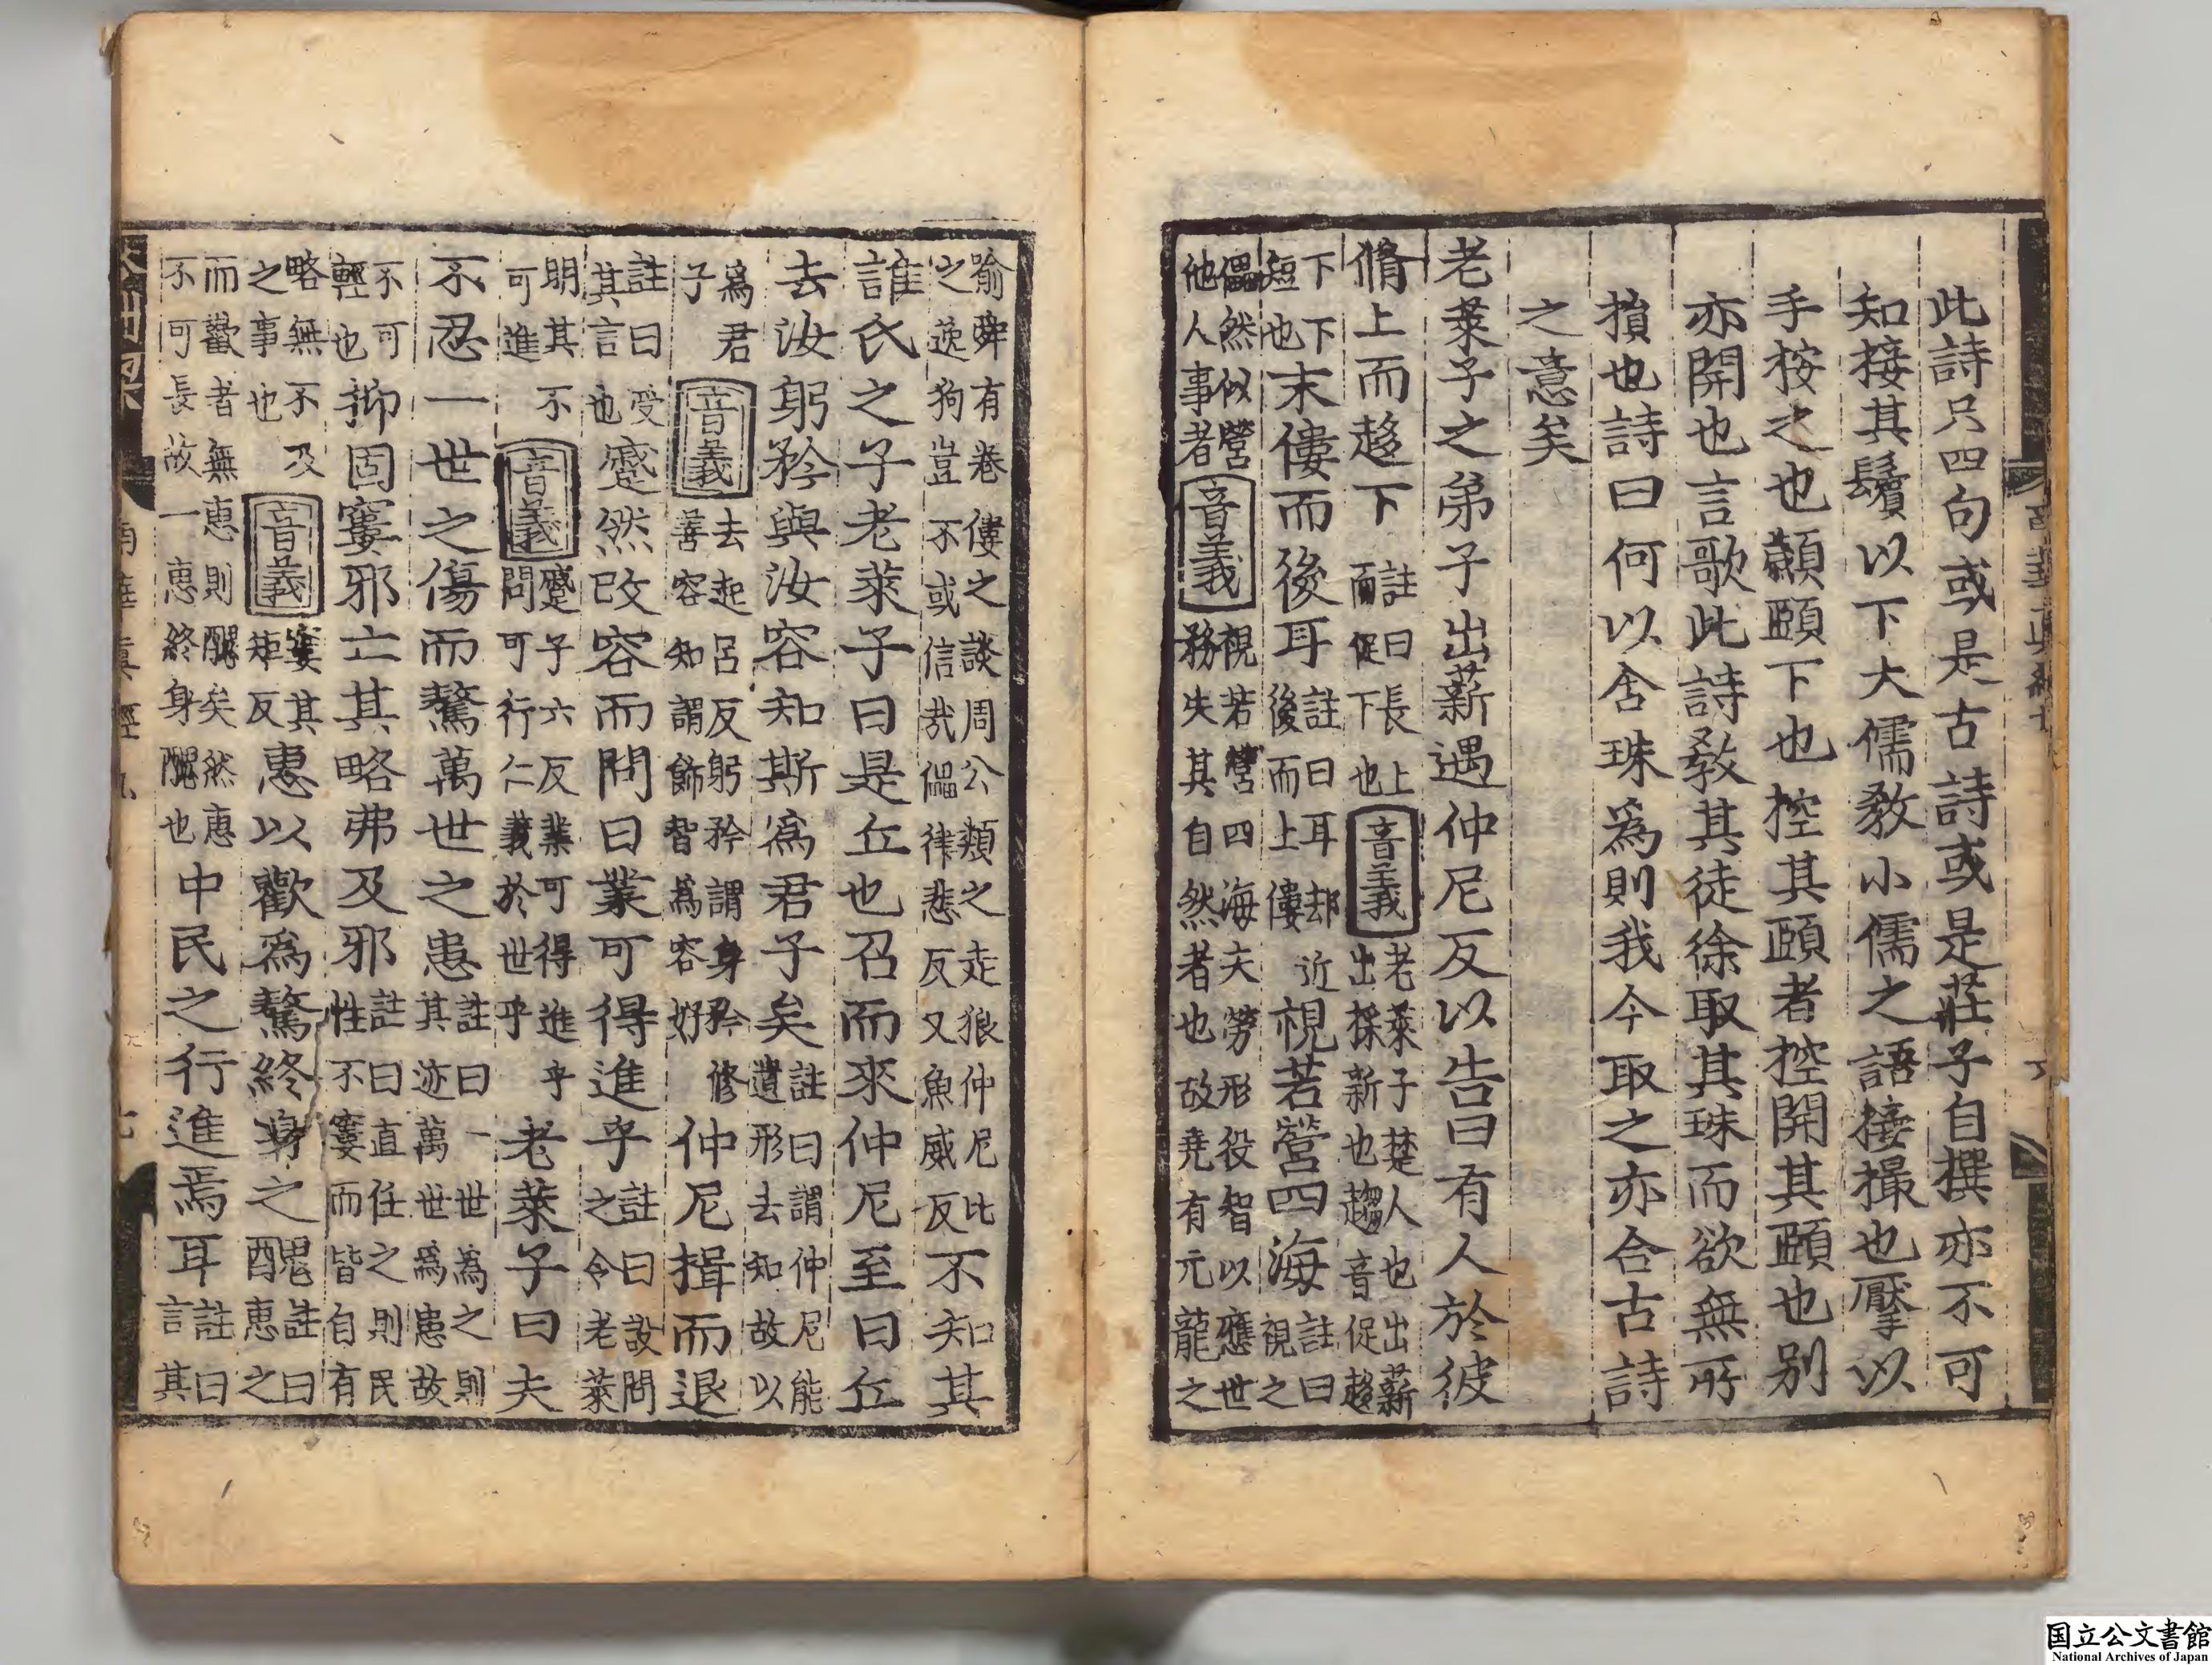 此詩只四句或是古詩或是莊子自撰亦不可
知接其鬢以下大儒敎小儒之語接撮也擪以
手按之也顪頤下也控其頤者控開其頤也别
亦開也言歌此詩敎其徒徐取其珠而欲無所
損也詩曰何以含珠爲則我今取之亦合古詩
之意矣
老萊子之弟子出薪遇仲尼反以告曰有人於彼
脩上而趍下註曰長上而促下也音義老萊子楚人也出薪出採薪也趨音促趍
下下短也末僂而後耳註曰耳却後而上僂近視若營四海註曰視之
儡然似營他人事者音義視若營四海夫勞形役智以應世務失其自然者也故堯有亢龍之
喻舜有卷僂之談周公類之走狼仲尼比之逸狗豈不或信㢤儡律悲反又魚威反不知其
誰氏之子老萊子曰是丘也召而來仲尼至曰丘
去汝躬矜與汝容知斯爲君子矣註曰謂仲尼能遺形去知故以
爲君子音義去起呂反躬矜謂身矜修善容知謂飾智爲容好仲尼揖而退
註曰受其言也蹙然改容而問曰業可得進乎註曰設問之令老萊
明其不可進音義蹙子六反業可得進乎問可行仁義於世乎老萊子曰夫
不忍一世之傷而驁萬世之患註曰一世爲之則其迹萬世爲患故
不可輕也抑固窶邪亡其略弗及邪註曰直任之則民性不窶而皆自有
略無不及之事也音義窶其矩反惠以歡爲驁終身之醜註曰惠之
而歡者無惠則醜矣然惠不可長故一惠終身醜也中民之行進焉耳註曰言其
南華真經九
七
国立公文書館
National Archives of Japan